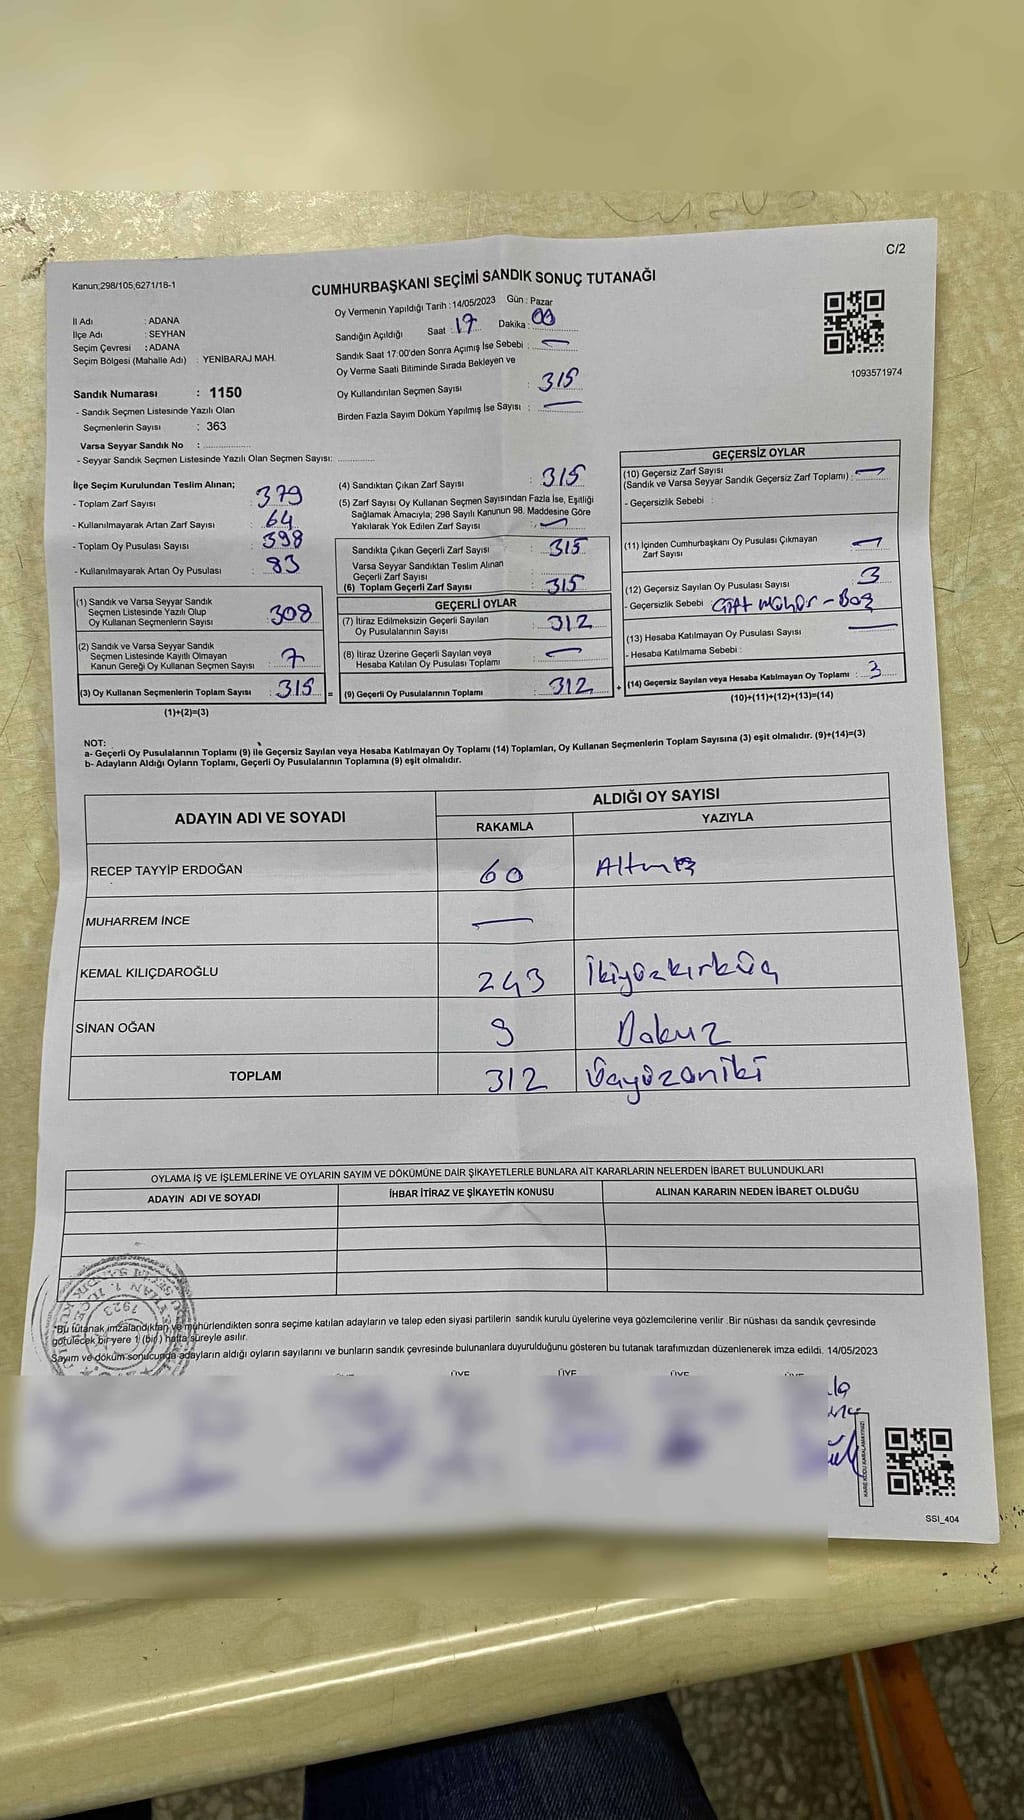 C/2
Kanun;298/105,6271/18-1
CUMHURBAŞKANI SEÇİMİ SANDIK SONUÇ TUTANAĞI
İl Adı : ADANA
İlçe Adı : SEYHAN
Seçim Çevresi : ADANA
Seçim Bölgesi (Mahalle Adı) : YENİBARAJ MAH.
Sandık Numarası : 1150
- Sandık Seçmen Listesinde Yazılı Olan
Seçmenlerin Sayısı : 363
Varsa Seyyar Sandık No :
- Seyyar Sandık Seçmen Listesinde Yazılı Olan Seçmen Sayısı:
Oy Vermenin Yapıldığı Tarih : 14/05/2023 Gün : Pazar
Sandığın Açıldığı Saat : 17 Dakika : 00
Sandık Saat 17:00'den Sonra Açmış İse Sebebi : —
Oy Verme Saati Bitiminde Sırada Bekleyen ve
Oy Kullandırılan Seçmen Sayısı : 315
Birden Fazla Sayım Döküm Yapılmış İse Sayısı : —
1093571974
İlçe Seçim Kurulundan Teslim Alınan;
- Toplam Zarf Sayısı : 379
- Kullanılmayarak Artan Zarf Sayısı : 64
- Toplam Oy Pusulası Sayısı : 398
- Kullanılmayarak Artan Oy Pusulası : 83
(1) Sandık ve Varsa Seyyar Sandık
Seçmen Listesinde Yazılı Olup
Oy Kullanan Seçmenlerin Sayısı : 308
(2) Sandık ve Varsa Seyyar Sandık
Seçmen Listesinde Kayıtlı Olmayan
Kanun Gereği Oy Kullanan Seçmen Sayısı : 7
(3) Oy Kullanan Seçmenlerin Toplam Sayısı : 315 =
(1)+(2)=(3)
(4) Sandıktan Çıkan Zarf Sayısı : 315
(5) Zarf Sayısı Oy Kullanan Seçmen Sayısından Fazla İse, Eşitliği
Sağlamak Amacıyla; 298 Sayılı Kanunun 98. Maddesine Göre
Yakılarak Yok Edilen Zarf Sayısı : —
Sandıkta Çıkan Geçerli Zarf Sayısı : 315
Varsa Seyyar Sandıktan Teslim Alınan
Geçerli Zarf Sayısı :
(6) Toplam Geçerli Zarf Sayısı : 315
GEÇERLİ OYLAR
(7) İtiraz Edilmeksizin Geçerli Sayılan
Oy Pusulalarının Sayısı : 312
(8) İtiraz Üzerine Geçerli Sayılan veya
Hesaba Katılan Oy Pusulası Toplamı : —
(9) Geçerli Oy Pusulalarının Toplamı : 312 +
GEÇERSİZ OYLAR
(10) Geçersiz Zarf Sayısı
(Sandık ve Varsa Seyyar Sandık Geçersiz Zarf Toplamı) : —
- Geçersizlik Sebebi :
(11) İçinden Cumhurbaşkanı Oy Pusulası Çıkmayan
Zarf Sayısı : —
(12) Geçersiz Sayılan Oy Pusulası Sayısı : 3
- Geçersizlik Sebebi : Çift Mühür - Boş
(13) Hesaba Katılmayan Oy Pusulası Sayısı : —
- Hesaba Katılmama Sebebi :
(14) Geçersiz Sayılan veya Hesaba Katılmayan Oy Toplamı : 3
(10)+(11)+(12)+(13)=(14)
NOT:
a- Geçerli Oy Pusulalarının Toplamı (9) ile Geçersiz Sayılan veya Hesaba Katılmayan Oy Toplamı (14) Toplamları, Oy Kullanan Seçmenlerin Toplam Sayısına (3) eşit olmalıdır. (9)+(14)=(3)
b- Adayların Aldığı Oyların Toplamı, Geçerli Oy Pusulalarının Toplamına (9) eşit olmalıdır.
ADAYIN ADI VE SOYADI ALDIĞI OY SAYISI
RAKAMLA YAZIYLA
RECEP TAYYİP ERDOĞAN 60 Altmış
MUHARREM İNCE —
KEMAL KILIÇDAROĞLU 243 İkiyüzkırküç
SİNAN OĞAN 9 Dokuz
TOPLAM 312 Üçyüzoniki
OYLAMA İŞ VE İŞLEMLERİNE VE OYLARIN SAYIM VE DÖKÜMÜNE DAİR ŞİKAYETLERLE BUNLARA AİT KARARLARIN NELERDEN İBARET BULUNDUKLARI
ADAYIN ADI VE SOYADI İHBAR İTİRAZ VE ŞİKAYETİN KONUSU ALINAN KARARIN NEDEN İBARET OLDUĞU
1923
*Bu tutanak imzalandıktan ve mühürlendikten sonra seçime katılan adayların ve talep eden siyasi partilerin sandık kurulu üyelerine veya gözlemcilerine verilir .Bir nüshası da sandık çevresinde
götülecek bir yere 1 (bir) hafta süreyle asılır.
Sayım ve döküm sonucunda adayların aldığı oyların sayılarını ve bunların sandık çevresinde bulunanlara duyurulduğunu gösteren bu tutanak tarafımızdan düzenlenerek imza edildi. 14/05/2023
ÜYE ÜYE ÜYE ÜYE
KARE KODU KARALAMAYINIZ!
SSI_404